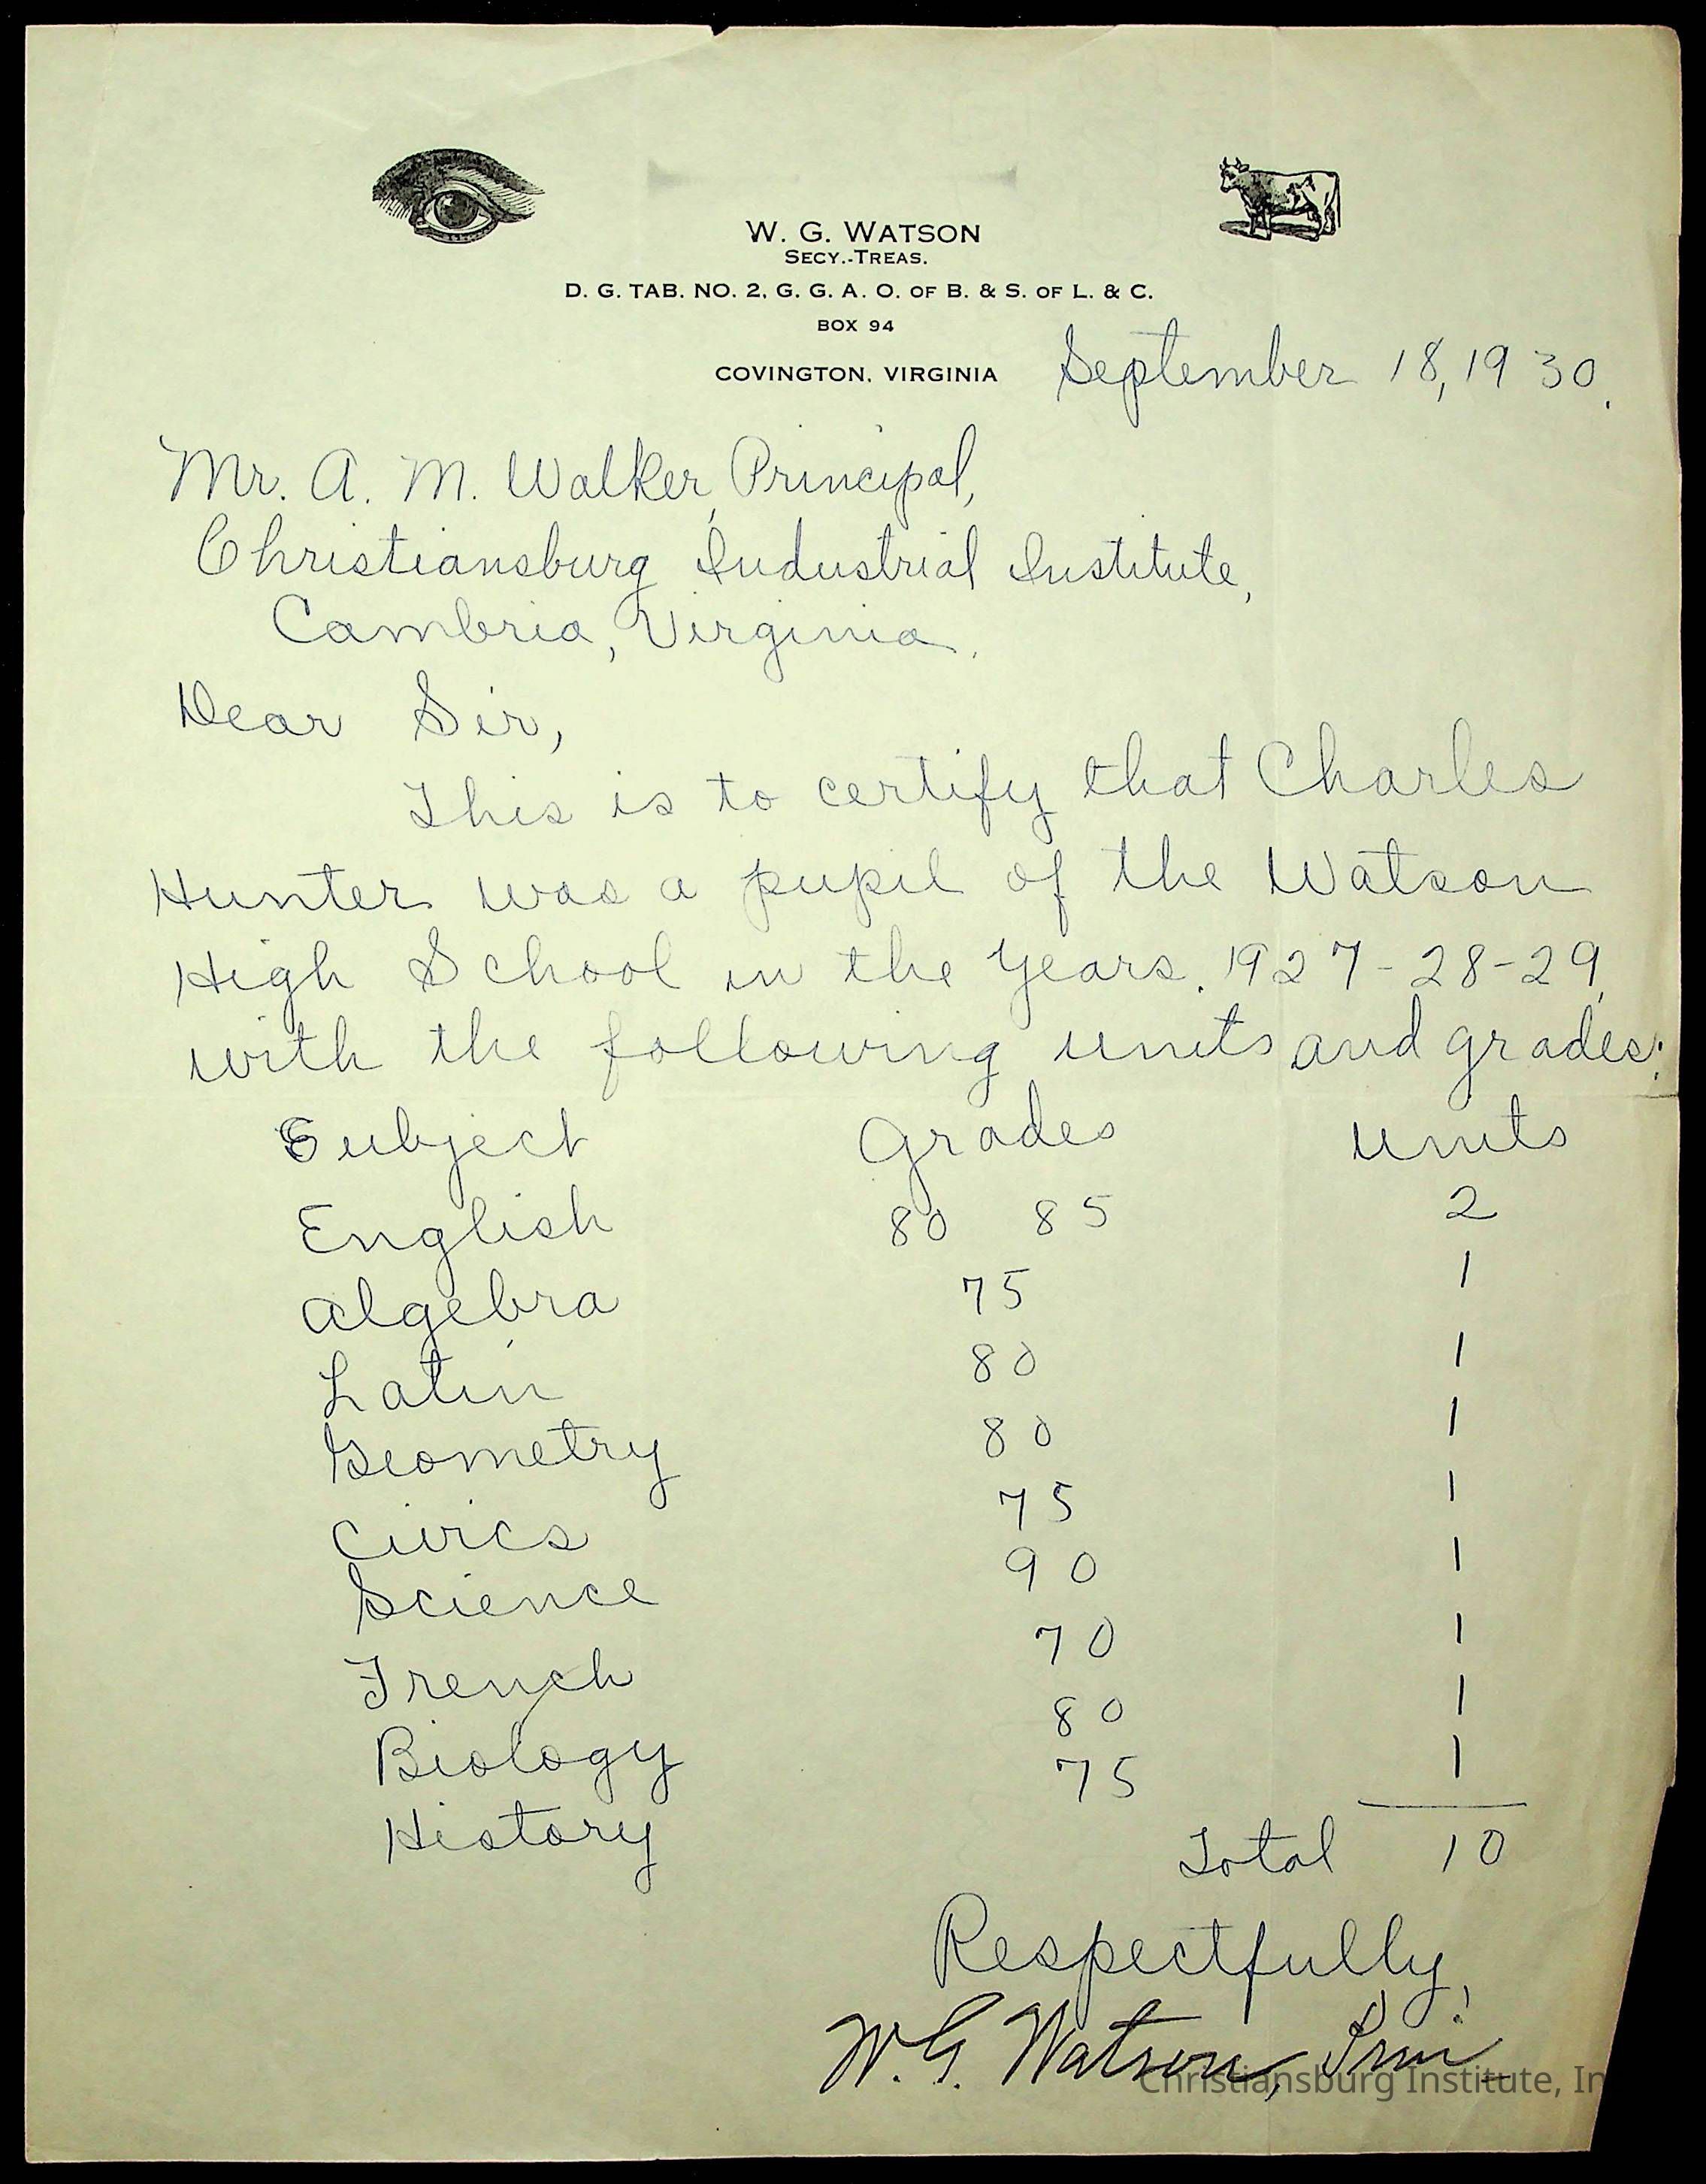 W. G. WATSON
SECY.-TREAS.
D. G. TAB. NO. 2, G. G. A. O. OF B. & S. OF L. & C.
BOX 94
COVINGTON, VIRGINIA September 18, 1930.
Mr. A. M. Walker, Principal,
Christiansburg Industrial Institute,
Cambria, Virginia.
Dear Sir,
This is to certify that Charles
Hunter was a pupil of the Watson
High School in the Years. 1927-28-29,
with the following units and grades:
Subject Grades Units
English 80 85 2
Algebra 75 1
Latin 80 1
Geometry 80 1
Civics 75 1
Science 90 1
French 70 1
Biology 80 1
History 75 1
Total 10
Respectfully,
W. G. Watson, Prin.
Christiansburg Institute, In